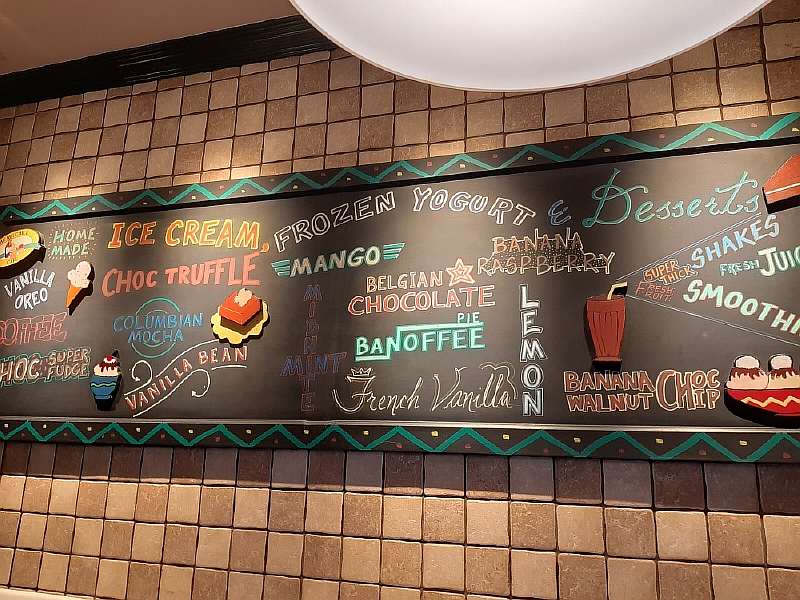 HOME MADE
ICE CREAM,
FROZEN YOGURT & Desserts
VANILLA
OREO
CHOC TRUFFLE
MANGO
BANANA
RASPBERRY
BELGIAN
CHOCOLATE
SUPER THICK
SHAKES
FRESH FRUIT
FRESH
SMOOTHI
COFFEE
COLUMBIAN
MOCHA
MINT
BANOFFEE
PIE
LEMON
CHOC SUPER
FUDGE
VANILLA BEAN
French Vanilla
BANANA
WALNUT
CHOC
CHIP